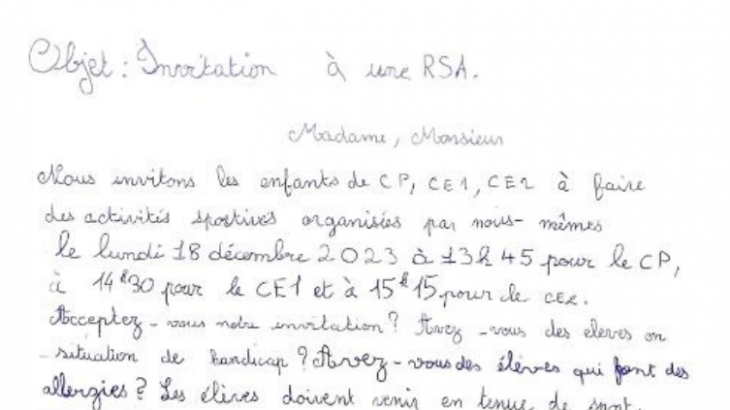 Objet : Invitation à une RSA.
Madame, Monsieur
Nous invitons les enfants de CP, CE1, CE2 à faire
des activités sportives organisées par nous-mêmes
le lundi 18 décembre 2023 à 13h45 pour le CP,
à 14h30 pour le CE1 et à 15h15 pour le CE2.
Acceptez-vous notre invitation? Avez-vous des eleves en
situation de handicap? Avez-vous des élèves qui font des
allergies? Les élèves doivent venir en tenue de sport.